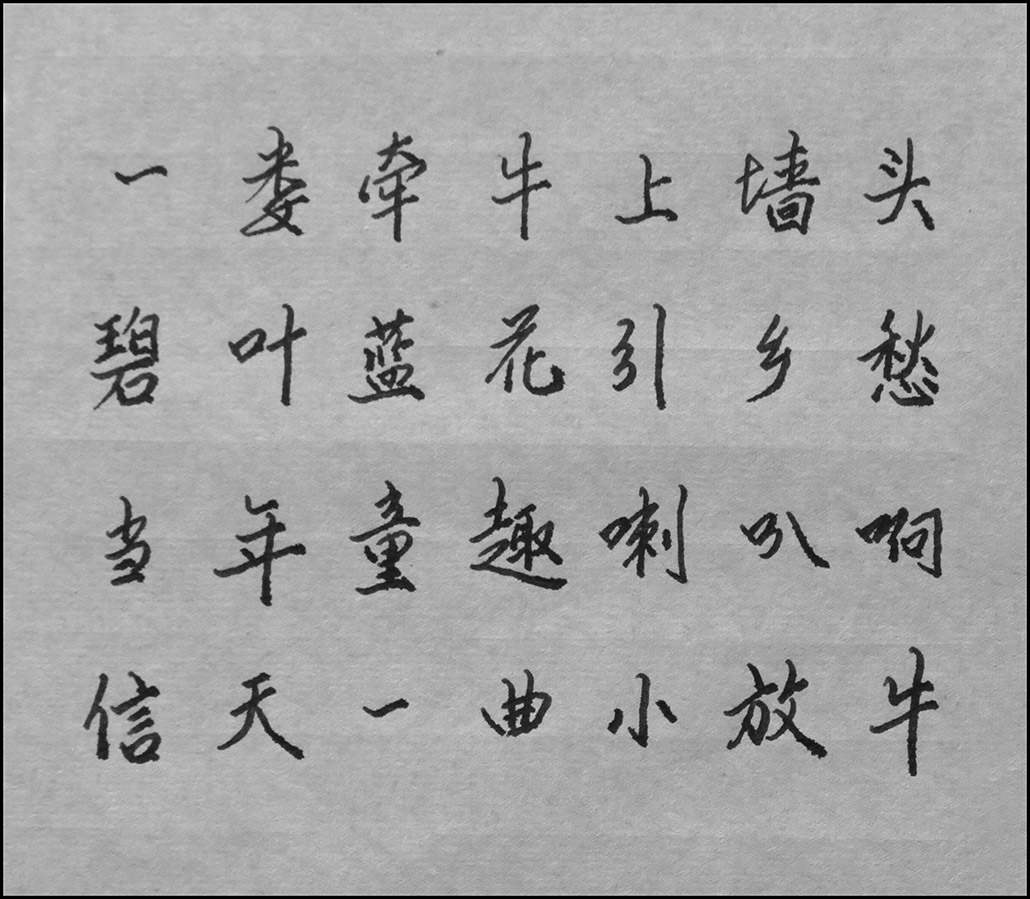 一娄牵牛上墙头
碧叶蓝花引乡愁
当年童趣喇叭响
信天一曲小放牛